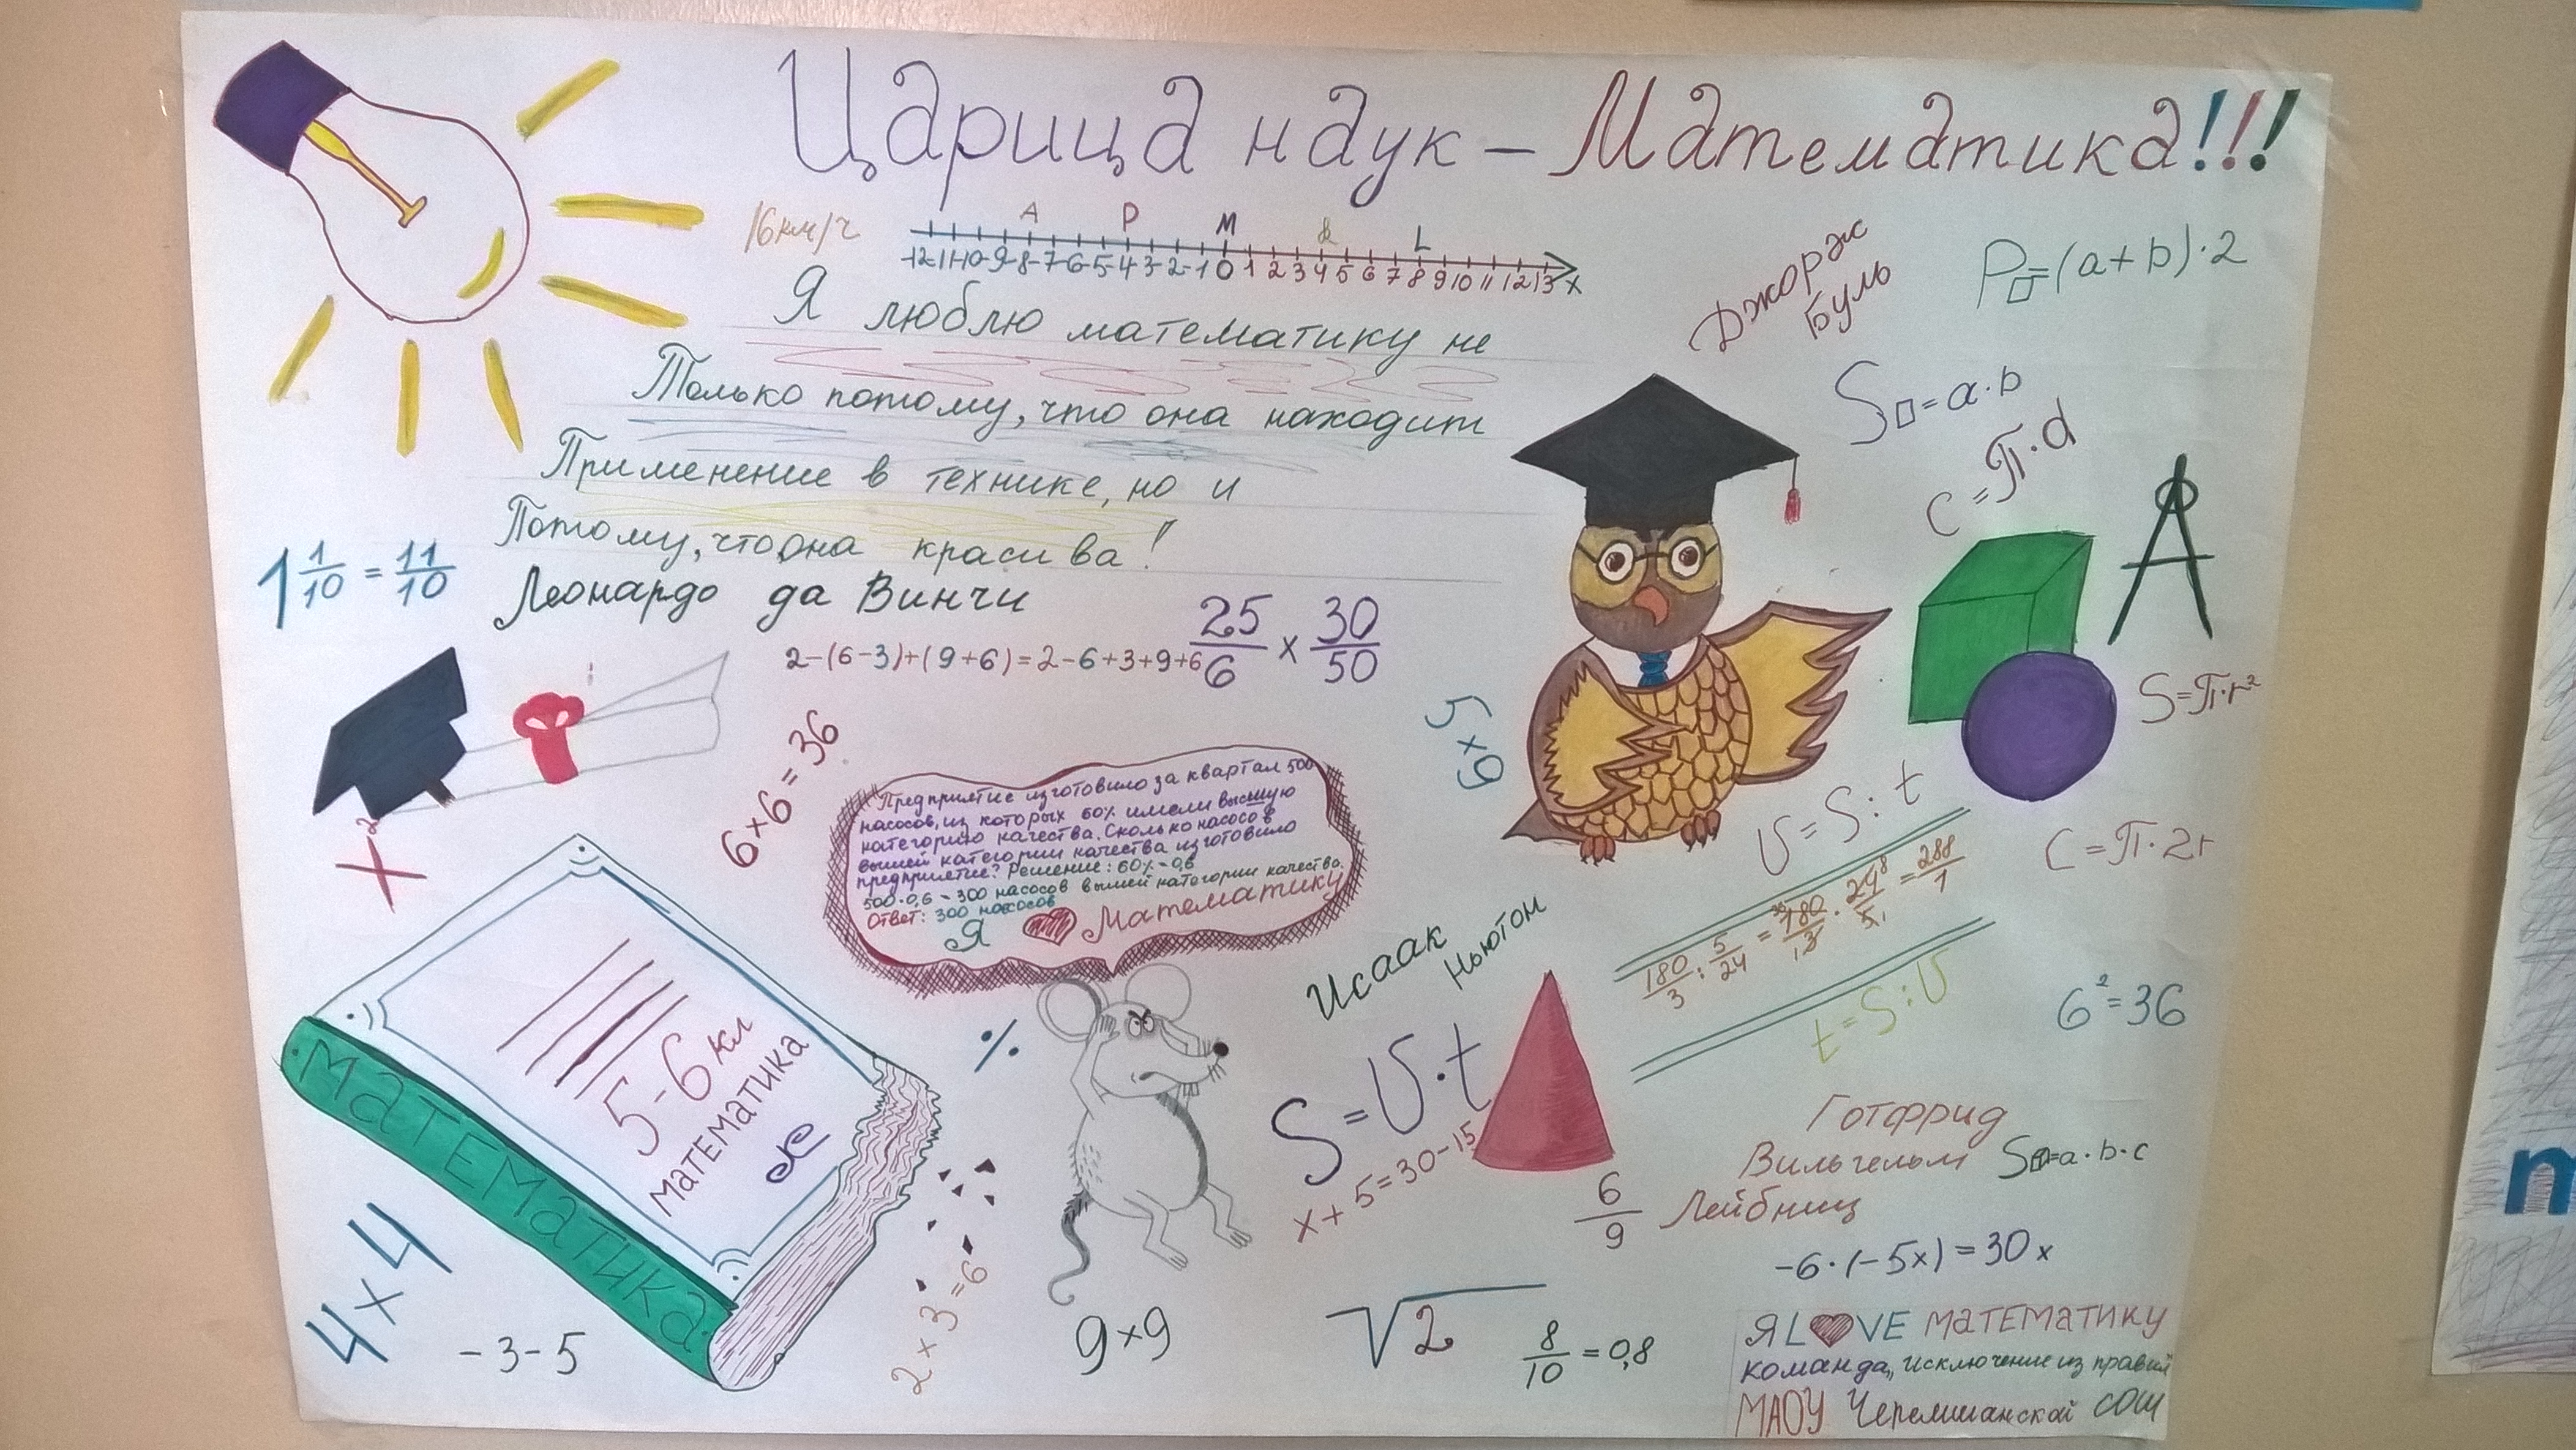 Царица наук – Математика!!!
16км/ч
A P M k L
-12-11-10-9-8-7-6-5-4-3-2-1 0 1 2 3 4 5 6 7 8 9 10 11 12 13 x
Я люблю математику не
Только потому, что она находит
Применение в технике, но и
Потому, что она красива!
Леонардо да Винчи
Джордж
Буль
P▱=(a+b)·2
S▱=a·b
C=π·d
1 1/10 = 11/10
2-(6-3)+(9+6)=2-6+3+9+6
25/6 × 30/50
5×9
S=π·r²
6×6=36
x²
Предприятие изготовило за квартал 500
насосов, из которых 60% имели высшую
категорию качества. Сколько насосов
высшей категории качества изготовило
предприятие? Решение: 60%=0,6
500·0,6=300 насосов высшей категории качества.
Ответ: 300 насосов
Я ❤ Математику
υ=S:t
C=π·2r
180/3 : 5/24 = 180/3 · 24/5 = 288/1
t=S:υ
6²=36
Исаак
Ньютон
5-6 кл
математика
МАТЕМАТИКА
%
S=υ·t
x+5=30-15
6/9
Готфрид
Вильгельм
Лейбниц
S▱=a·b·c
-6·(-5x)=30x
4×4
-3-5
2×3=6
9×9
√2
8/10 = 0,8
Я L❤VE математику
команда „исключение из правил
МАОУ Черемшанской СОШ